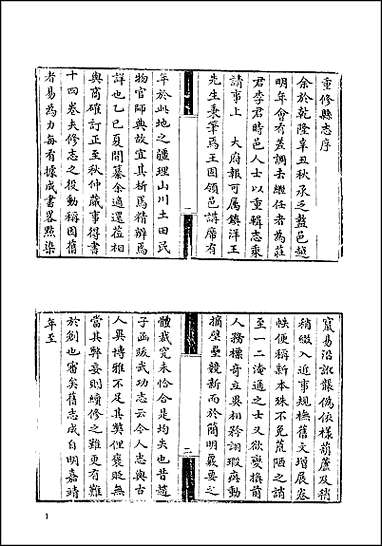 重修縣志序
余於乾隆辛丑秋承乏盩邑越
明年會有差調去繼任者為莊
君李君時邑人士以重輯志乘
請事上　大府報可屬鎮洋王
先生秉筆焉王固領邑講席有
年於此地之疆理山川土田民
物官師典故宜其析焉精辨焉
詳也乙巳夏閒綦余適還莅相
與商確訂正至秋仲蕆事得書
十四卷夫修志之役動稱因舊
者易為力每有據成書略點染
竄易沿訛襲偽依樣葫蘆及稍
稍綴入近事規撫舊文增展卷
帙便稱新本殊不免荒陋之誚
至一二淹通之士又欲變換前
人務標奇立異相矜詡瑕疵動
摘壁壘競新而於簡明嚴要之
體裁究未恰合是均失也昔趙
子函跋武功志云今人志與古
人異博雅不足其獘俚褒貶無
當其獘妄則續修之難更有難
於剏也審矣舊志成自明嘉靖
年至
1